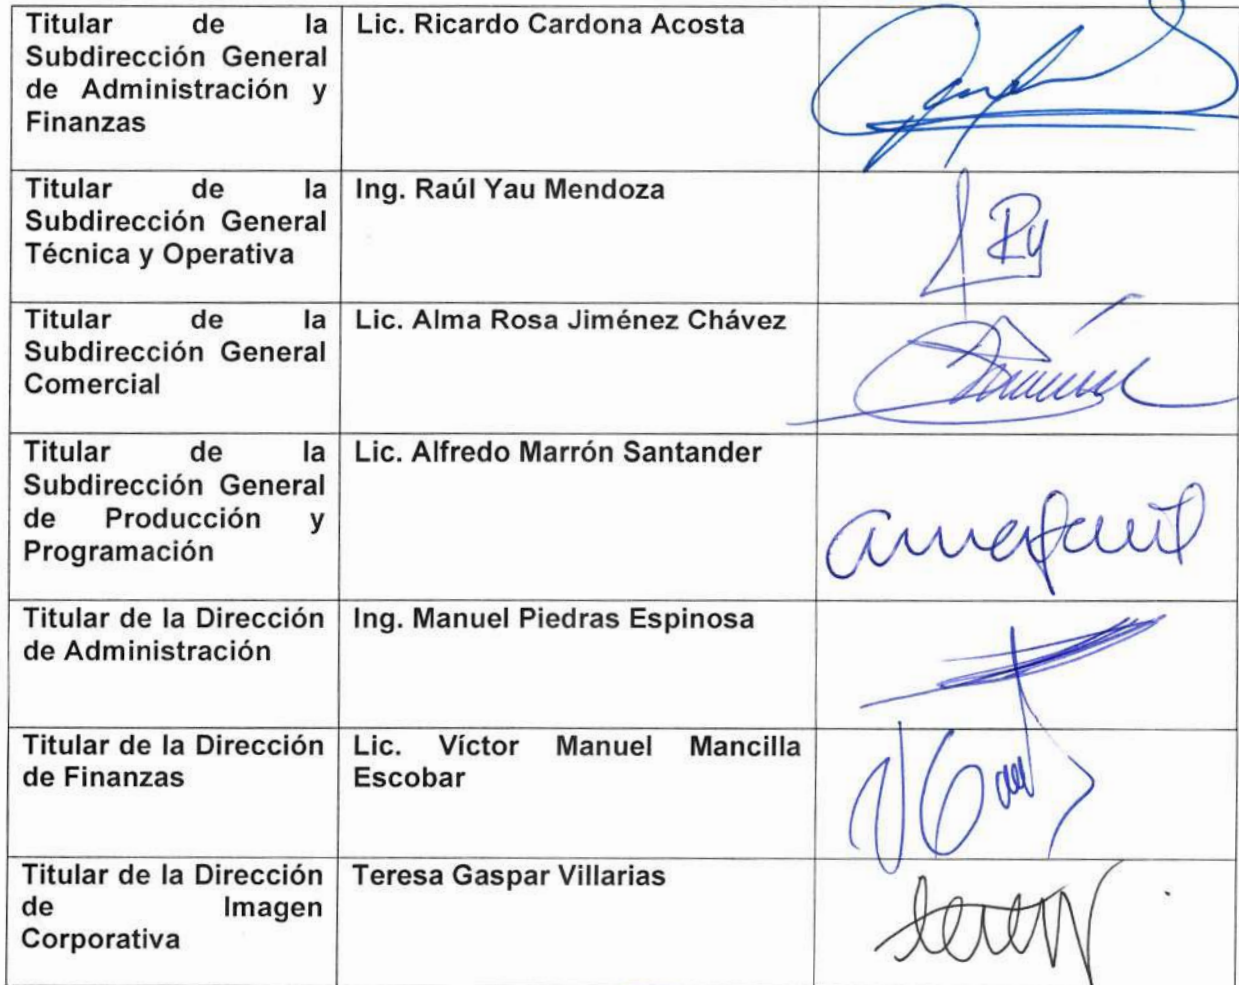 Titular de la
Subdirección General
de Administración y
Finanzas
Lic. Ricardo Cardona Acosta
Titular de la
Subdirección General
Técnica y Operativa
Ing. Raúl Yau Mendoza
Titular de la
Subdirección General
Comercial
Lic. Alma Rosa Jiménez Chávez
Titular de la
Subdirección General
de Producción y
Programación
Lic. Alfredo Marrón Santander
Titular de la Dirección
de Administración
Ing. Manuel Piedras Espinosa
Titular de la Dirección
de Finanzas
Lic. Víctor Manuel Mancilla
Escobar
Titular de la Dirección
de Imagen
Corporativa
Teresa Gaspar Villarias